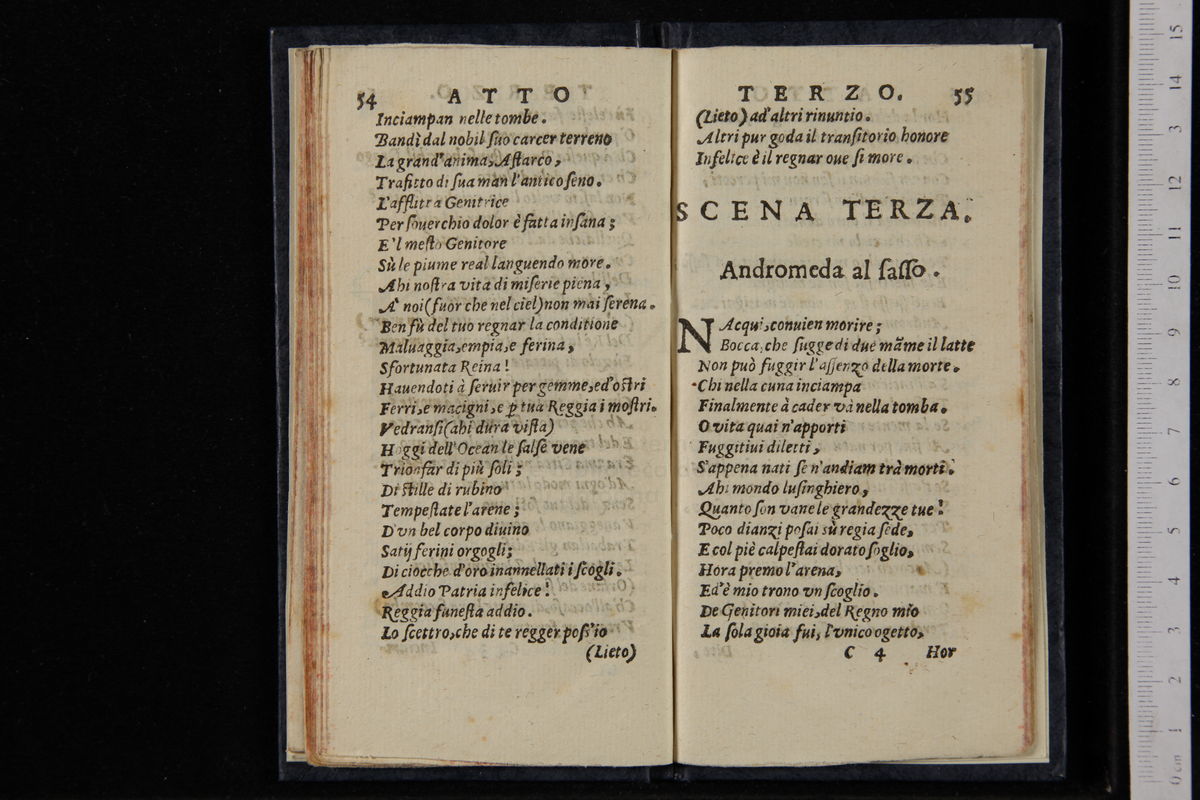 54 ATTO
Inciampan nelle tombe.
Bandì dal nobil ſuo carcer terreno
La grand'anima, Aſtarco,
Trafitto di ſua man l'antico ſeno.
L'afflitta Genitrice
Per ſouerchio dolor è fatta inſana;
E'l meſto Genitore
Sù le piume real languendo more.
Ahi noſtra vita di miſerie piena,
A' noi (fuor che nel ciel) non mai ſerena.
Ben fù del tuo regnar la conditione
Maluaggia, empia, e ferina,
Sfortunata Reina!
Hauendoti à ſeruir per gemme, ed'oſtri
Ferri, e macigni, e ꝑ tua Reggia i moſtri.
Vedranſi (ahi dura viſta)
Hoggi dell'Ocean le ſalſe vene
Trionfar di più ſoli;
Di ſtille di rubino
Tempeſtate l'arene;
D'vn bel corpo diuino
Satij ferini orgogli;
Di ciocche d'oro inannellati i ſcogli.
Addio Patria infelice!
Reggia funeſta addio.
Lo ſcettro, che di te regger poſſ'io
(Lieto)
TERZO. 55
(Lieto) ad'altri rinuntio.
Altri pur goda il tranſitorio honore
Infelice è il regnar oue ſi more.
SCENA TERZA.
Andromeda al ſaſſo.
NAcqui, conuien morire;
Bocca, che ſugge di due mãme il latte
Non può fuggir l'aſſenzo della morte.
Chi nella cuna inciampa
Finalmente à cader và nella tomba.
O vita quai n'apporti
Fuggitiui diletti,
S'appena nati ſe n'andiam trà morti.
Ahi mondo luſinghiero,
Quanto ſon vane le grandezze tue!
Poco dianzi poſai sù regia ſede,
E col piè calpeſtai dorato ſoglio,
Hora premo l'arena,
Ed'è mio trono vn ſcoglio.
De Genitori miei, del Regno mio
La ſola gioia fui, l'vnico ogetto,
C 4 Hor
15
14
13
12
11
10
9
8
7
6
5
4
3
2
1
0 cm